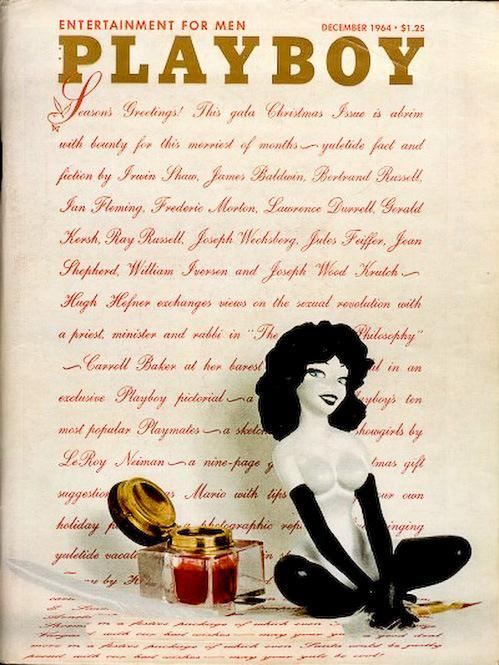 ENTERTAINMENT FOR MEN
DECEMBER 1964 • $1.25
PLAYBOY
Season's Greetings! This gala Christmas Issue is abrim
with bounty for this merriest of months — yuletide fact and
fiction by Irwin Shaw, James Baldwin, Bertrand Russell,
Ian Fleming, Frederic Morton, Lawrence Durrell, Gerald
Kersh, Ray Russell, Joseph Wechsberg, Jules Feiffer, Jean
Shepherd, William Iversen and Joseph Wood Krutch —
Hugh Hefner exchanges views on the sexual revolution with
a priest, minister and rabbi in "The Philosophy"
— Carroll Baker at her barest in an
exclusive Playboy pictorial — a ten
most popular Playmates — a showgirls by
LeRoy Neiman — a nine-page gift
Mario with tips our own
holiday photographic
yuletide
by